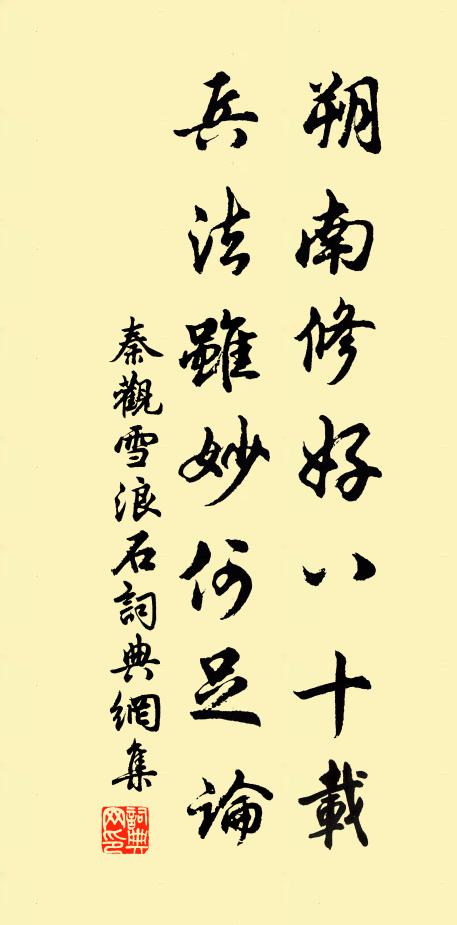 朔南修好八十載
兵法雖妙何足論
秦觀雪浪石詞典網集
詞典網印